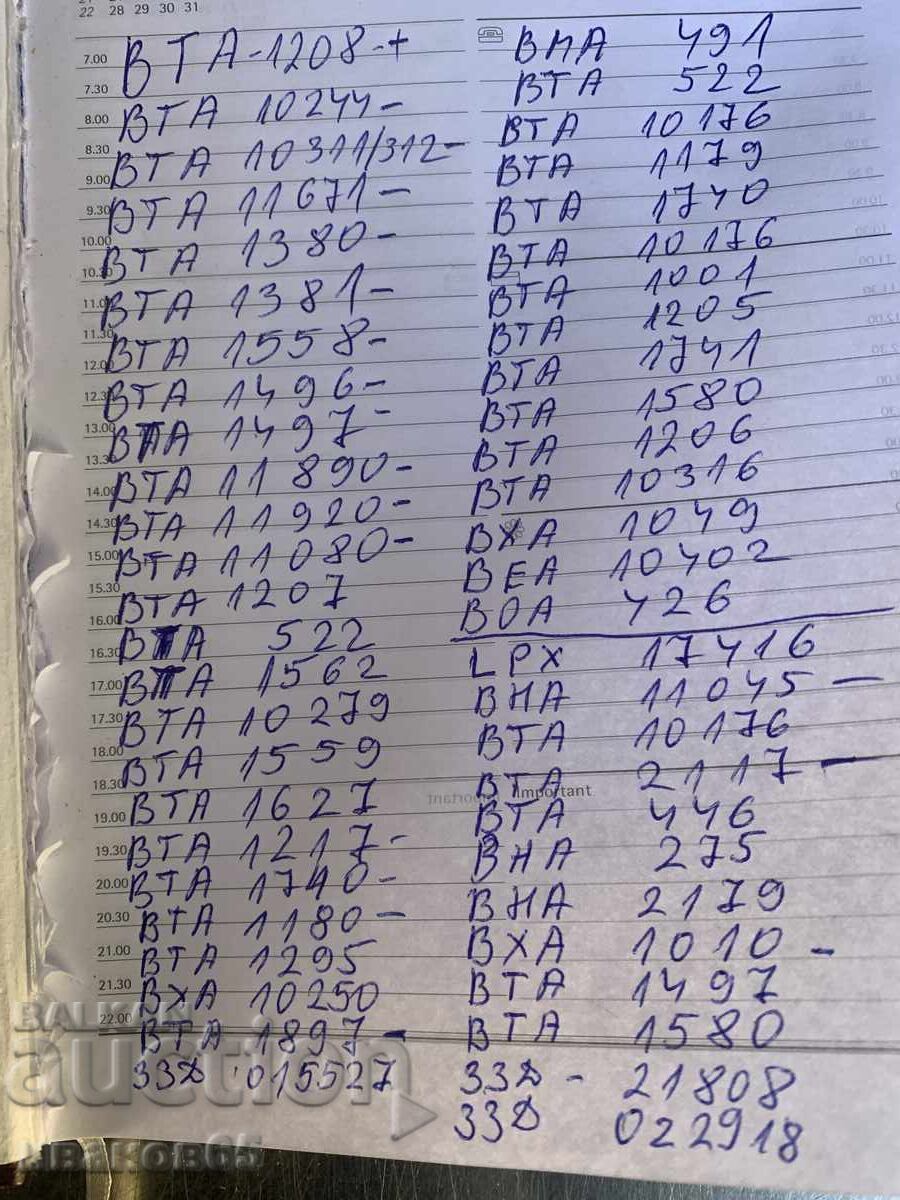 22 28 29 30 31
7.00 ВТА-1208-+
7.30
8.00 ВТА 10244-
8.30 ВТА 10311/312-
9.00
9.30 ВТА 11671-
10.00 ВТА 1380-
10.30
11.00 ВТА 1381-
11.30 ВТА 1558-
12.00
12.30 ВТА 1496-
13.00 ВТА 1497-
13.30
14.00 ВТА 11890-
14.30 ВТА 11920-
15.00 ВТА 11080-
15.30 ВТА 1207
16.00
16.30 ВТА 522
17.00 ВТА 1562
17.30 ВТА 10279
18.00 ВТА 1559
18.30
19.00 ВТА 1627
19.30 ВТА 1217-
20.00 ВТА 1740-
20.30 ВТА 1180-
21.00 ВТА 1295
21.30 ВХА 10250
22.00 ВТА 1897-
33Д 015527
ВНА 491
ВТА 522
ВТА 10176
ВТА 1179
ВТА 1740
ВТА 10176
ВТА 1001
ВТА 1205
ВТА 1741
ВТА 1580
ВТА 1206
ВТА 10316
ВХА 1049
ВЕА 10402
ВОА 426
LPX 17416
ВНА 11045-
ВТА 10176
ВТА 2117-
Important
ВТА 446
ВНА 275
ВНА 2179
ВХА 1010-
ВТА 1497
ВТА 1580
33Д - 21808
33Д 022918
BALKAN
auction
ИВАНОВ65